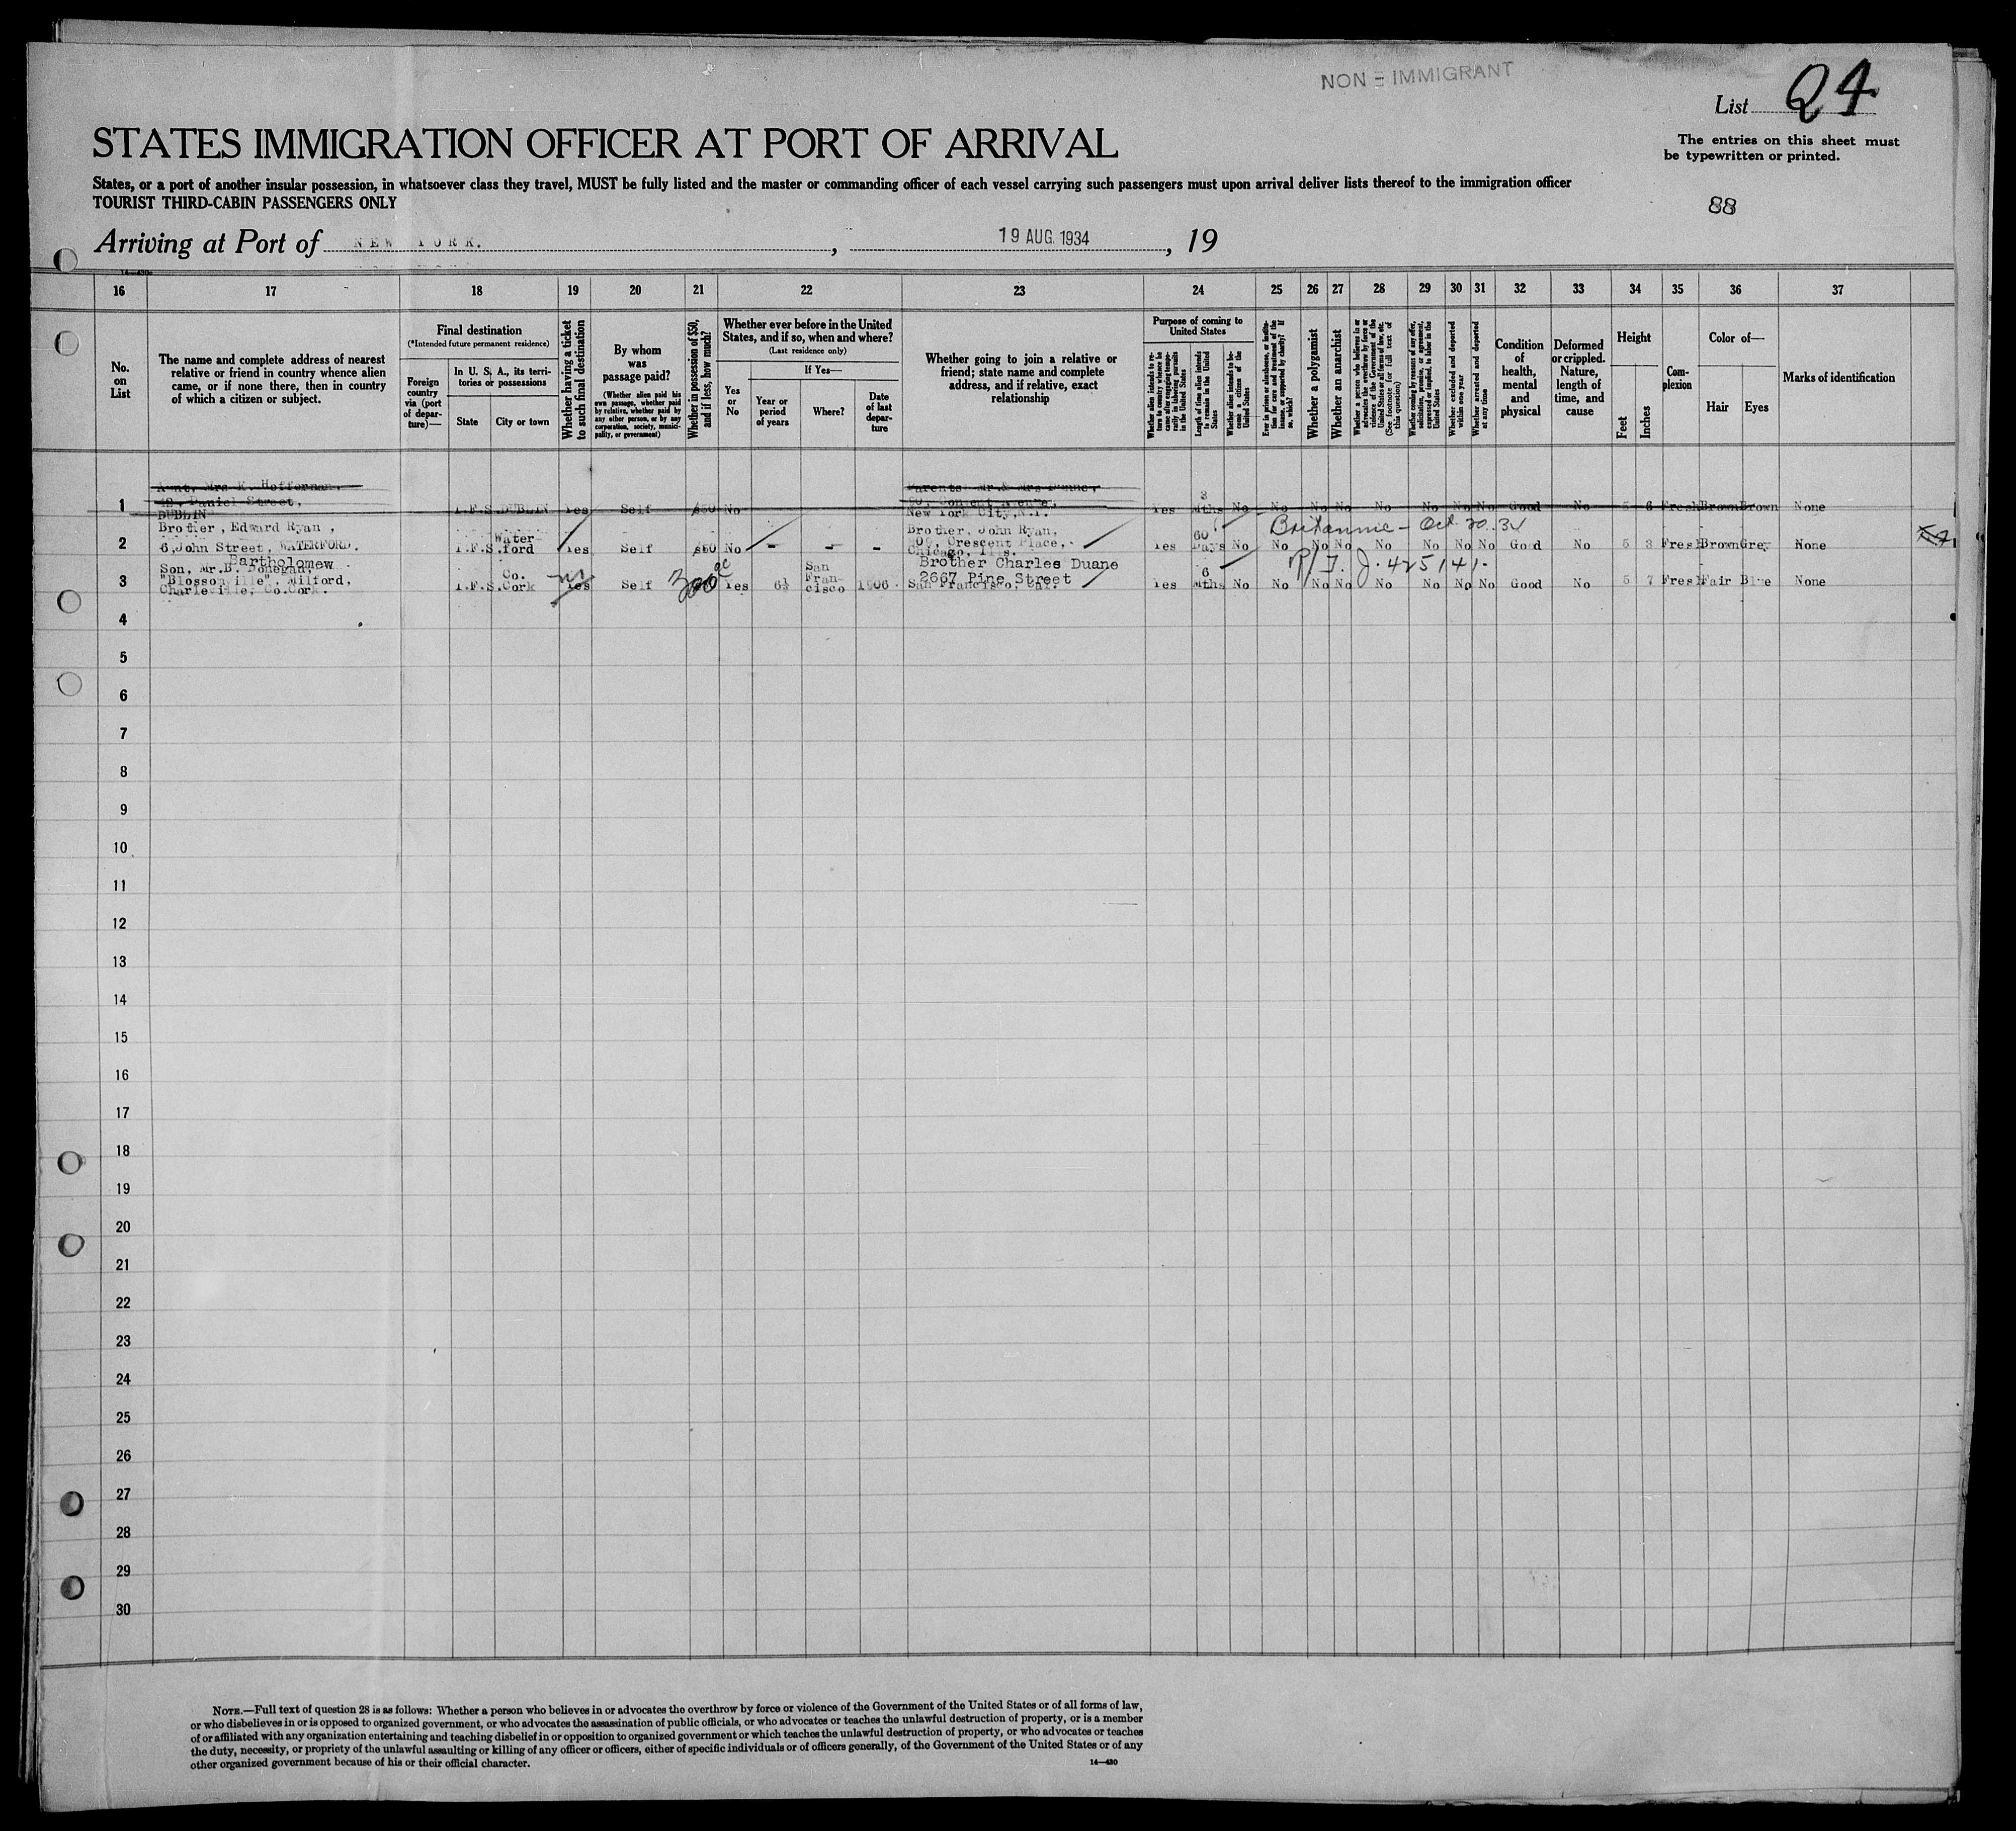 NON = IMMIGRANT
List 24
STATES IMMIGRATION OFFICER AT PORT OF ARRIVAL
The entries on this sheet must
be typewritten or printed.
States, or a port of another insular possession, in whatsoever class they travel, MUST be fully listed and the master or commanding officer of each vessel carrying such passengers must upon arrival deliver lists thereof to the immigration officer
TOURIST THIRD-CABIN PASSENGERS ONLY
88
Arriving at Port of NEW YORK. , 19 AUG. 1934 , 19
16 17 18 19 20 21 22 23 24 25 26 27 28 29 30 31 32 33 34 35 36 37
No.
on
List
The name and complete address of nearest
relative or friend in country whence alien
came, or if none there, then in country
of which a citizen or subject.
Final destination
(*Intended future permanent residence)
Foreign
country
via (port
of depar-
ture)—
In U. S. A., its terri-
tories or possessions
State
City or town
Whether having a ticket
to such final destination
By whom
was
passage paid?
(Whether alien paid his
own passage, whether paid
by relative, whether paid by
any other person, or by any
corporation, society, munici-
pality, or government)
Whether in possession of $50,
and if less, how much?
Whether ever before in the United
States, and if so, when and where?
(Last residence only)
Yes
or
No
If Yes—
Year or
period
of years
Where?
Date
of last
depar-
ture
Whether going to join a relative or
friend; state name and complete
address, and if relative, exact
relationship
Purpose of coming to
United States
Whether alien intends to re-
turn to country whence he
came after engaging tempo-
rarily in laboring pursuits
in the United States
Length of time alien intends
to remain in the United
States
Whether alien intends to be-
come a citizen of the
United States
Ever in prison or almshouse, or institu-
tion for care and treatment of the
insane, or supported by charity? If
so, which?
Whether a polygamist
Whether an anarchist
Whether a person who believes in or
advocates the overthrow by force or
violence of the Government of the
United States or all forms of law, etc.
(See footnote for full text of
this question)
Whether coming by reason of any offer,
solicitation, promise, or agreement,
expressed or implied, to labor in the
United States
Whether excluded and deported
within one year
Whether arrested and deported
at any time
Condition
of
health,
mental
and
physical
Deformed
or crippled.
Nature,
length of
time, and
cause
Height
Feet
Inches
Com-
plexion
Color of—
Hair
Eyes
Marks of identification
Aunt, Mrs K. Heffernan,
Daniel Street,
DUBLIN
Parents Mr & Mrs Dunne,
New York City, N.Y.
1 I.F.S. DUBLIN Yes Self $50 No Yes 3 Mths No No No No No No No No Good No 5 6 Fresh Brown Brown None
Britannic - Oct 20. 34
Brother, Edward Ryan,
6, John Street, WATERFORD.
Brother, John Ryan,
Crescent Place,
Chicago, Ills.
2 I.F.S. Water-ford Yes Self $50 No - - - Yes 60 Days No No No No No No No No Good No 5 3 Fresh Brown Grey None
R/T. J. 425141.
Bartholomew
Son, Mr.B. Donegan,
"Blossomville", Milford,
Charleville, Co.Cork.
Brother Charles Duane
2667 Pine Street
San Francisco, Cal.
3 I.F.S. Co. Cork Yes Self 300 Yes 6½ San Fran-cisco 1906 Yes 6 Mths No No No No No No No No Good No 5 7 Fresh Fair Blue None
4
5
6
7
8
9
10
11
12
13
14
15
16
17
18
19
20
21
22
23
24
25
26
27
28
29
30
NOTE.—Full text of question 28 is as follows: Whether a person who believes in or advocates the overthrow by force or violence of the Government of the United States or of all forms of law,
or who disbelieves in or is opposed to organized government, or who advocates the assassination of public officials, or who advocates or teaches the unlawful destruction of property, or is a member
of or affiliated with any organization entertaining and teaching disbelief in or opposition to organized government or which teaches the unlawful destruction of property, or who advocates or teaches
the duty, necessity, or propriety of the unlawful assaulting or killing of any officer or officers, either of specific individuals or of officers generally, of the Government of the United States or of any
other organized government because of his or their official character.
14—430